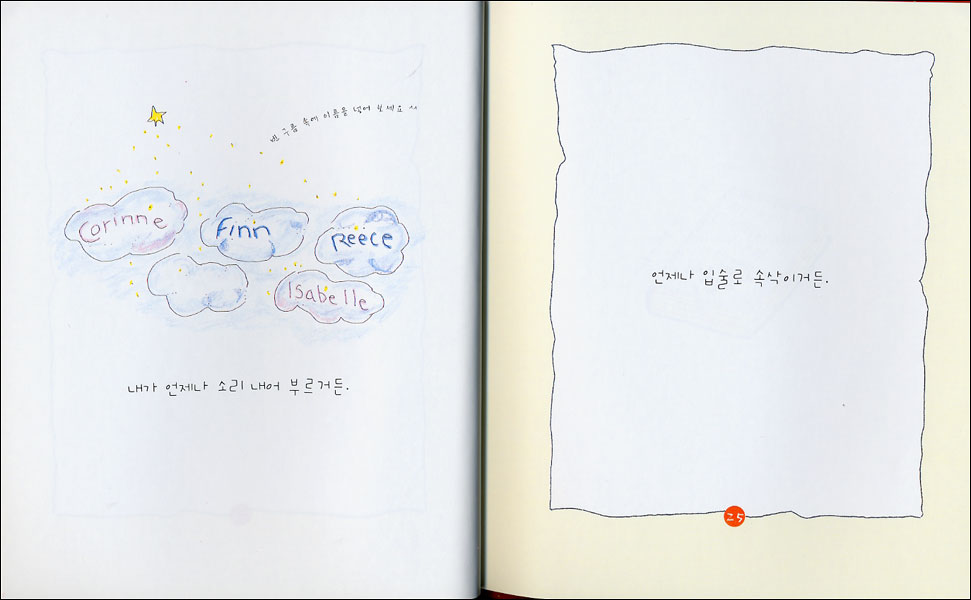 빈 구름 속에 이름을 넣어 보세요 ^^
Corinne
Finn
Reece
Isabelle
내가 언제나 소리 내어 부르거든.
언제나 입술로 속삭이거든.
25